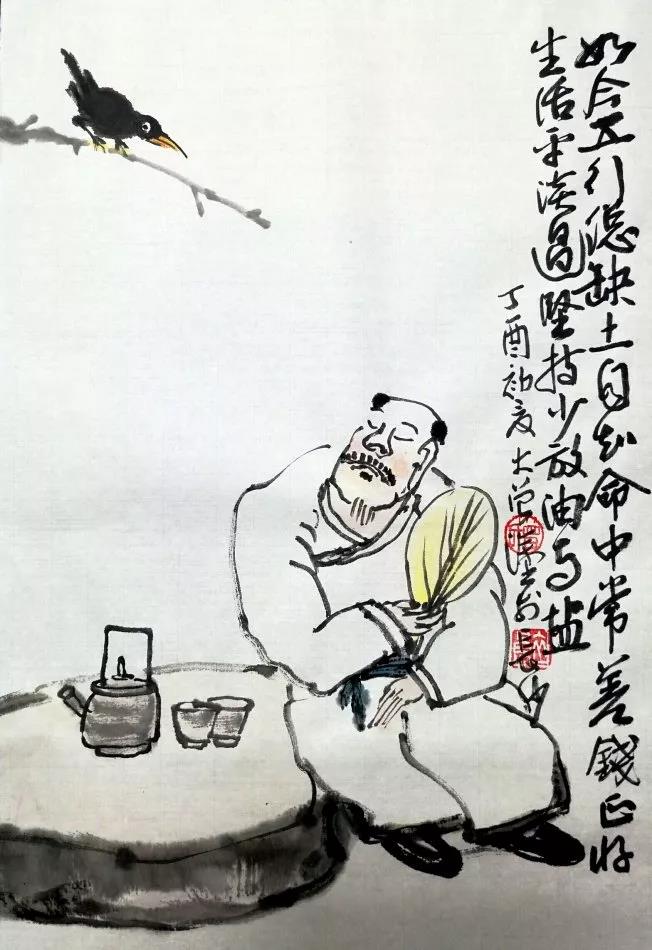 如今五行總缺土自知命中常差錢正好
生活平淡過堅持少放油与盐
丁酉初夏大於長沙